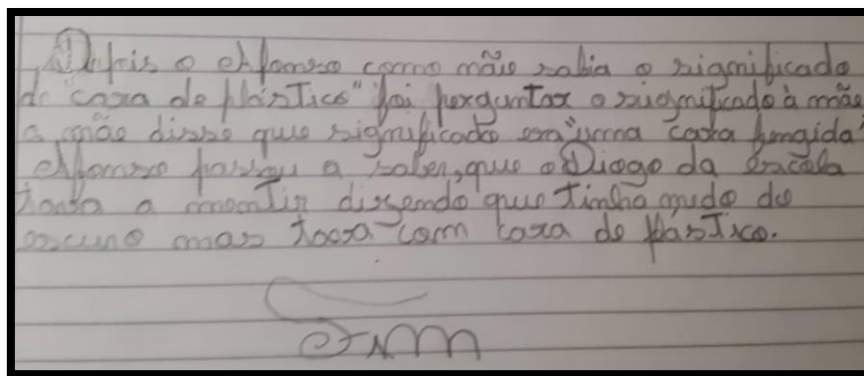 Depois o Afonso como não sabia o significado
de "cara de plástico" foi perguntar o significado à mãe
a mãe disse que significado era "uma cara fingida"
Afonso passou a saber, que o Diogo da escola
a mentir dizendo que tinha medo do
escuro mas com cara de plástico.
FIM